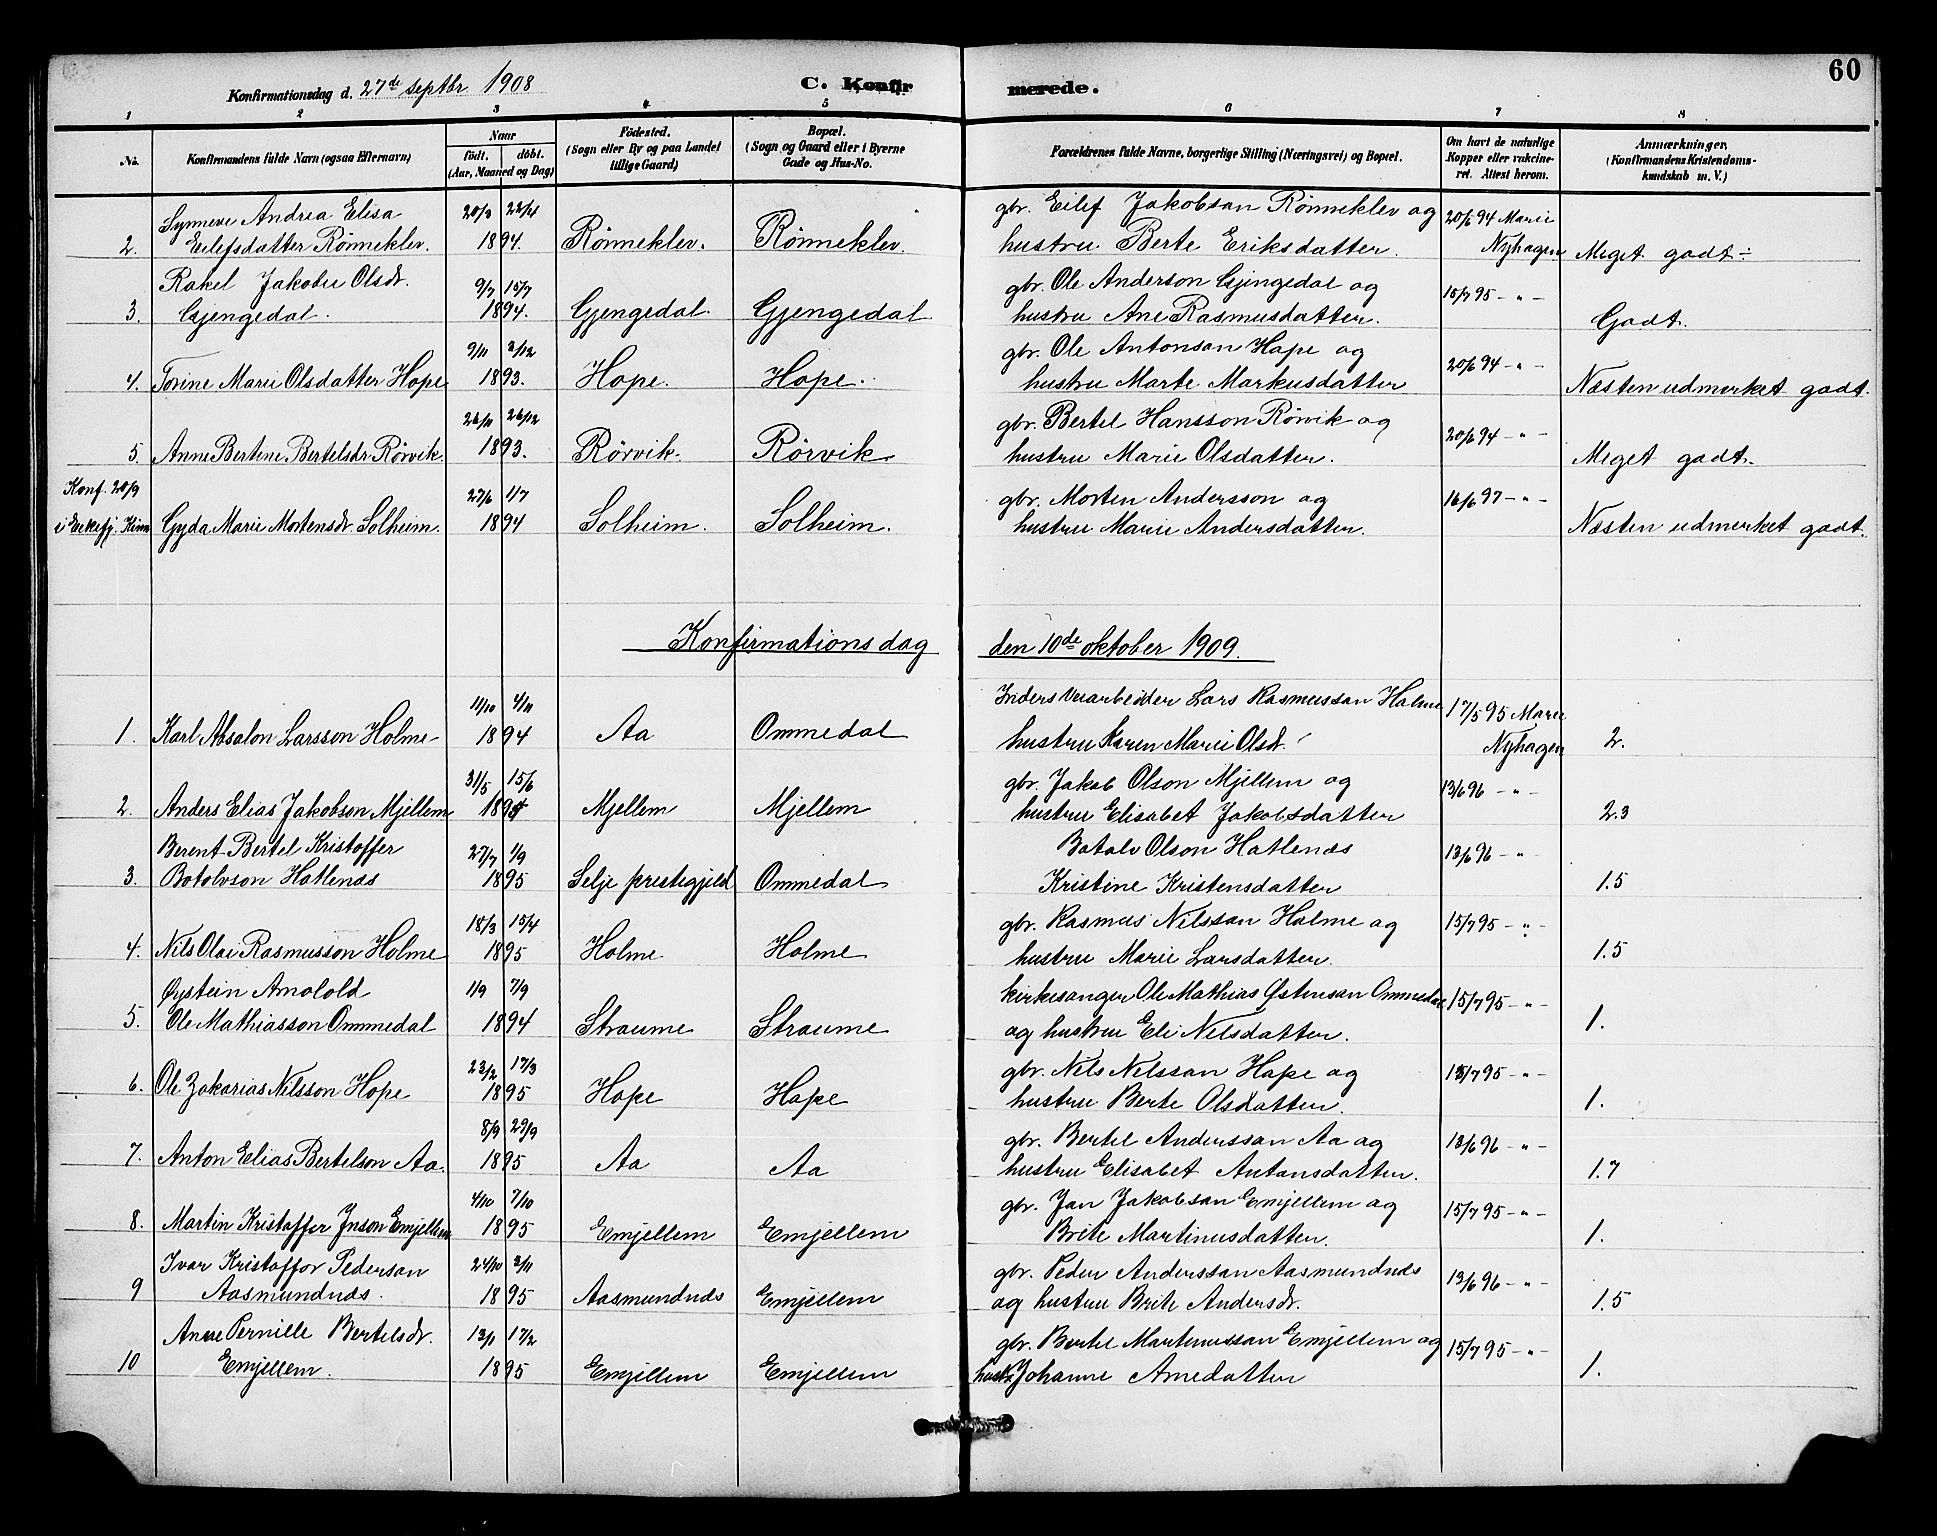 60
Konfirmationsdag d. 27de septbr 1908 C. Konfirmerede.
1 2 3 4 5 6 7 8
No. Konfirmandens fulde Navn (ogsaa Efternavn) Naar født. døbt. (Aar, Maaned og Dag) Fødested. (Sogn eller By og paa Landet tillige Gaard) Bopæl. (Sogn og Gaard eller i Byerne Gade og Hus-No. Forældrenes fulde Navne, borgerlige Stilling (Næringsvei) og Bopæl. Om havt de naturlige Kopper eller vakcineret. Attest herom. Anmærkninger, (Konfirmandens Kristendomskundskab m. V.)
Synneve Andrea Elisa 20/3 22/4 gbr. Eilef Jakobson Rønneklev og 20/6 94 Marie
2. Eilefsdatter Rønneklev. 1894. Rønneklev. Rønneklev. hustru Berte Eriksdatter. Nyhagen Meget godt ÷
Rakel Jakobie Olsdr. 9/7 15/7 gbr. Ole Anderson Gjengedal og 15/7 95 - " -
3. Gjengedal. 1894. Gjengedal. Gjengedal hustru Ane Rasmusdatter. Godt.
9/11 3/12 gbr. Ole Antonson Hope og 20/6 94 - " -
4. Torine Marie Olsdatter Hope 1893. Hope. Hope. hustru Marte Markusdatter Næsten udmerket godt.
26/11 26/12 gbr. Bertel Hansson Rørvik og 20/6 94 - " -
5. Anne Bertine Bertelsdr Rørvik. 1893. Rørvik. Rørvik hustru Marie Olsdatter. Meget godt.
Konf. 20/9 27/6 1/7 gbr. Morten Andersson og 16/6 97 - " -
i Eikefj. Kinn Gyda Marie Mortensdr. Solheim. 1894 Solheim. Solheim. hustru Marie Andersdatter. Næsten udmerket godt.
Konfirmationsdag den 10de oktober 1909.
11/10 4/11 Lars Rasmusson Holme 17/5 95 Marie
1. Karl Absalon Larsson Holme 1894 Aa Ommedal hustru Karen Marie Olsdr. Nyhagen 2.
31/5 15/6 gbr. Jakob Olson Mjellem og 13/6 96 - " -
2. Anders Elias Jakobson Mjellem Mjellem Mjellem hustru Elisabet Jakobsdatter 2.3
Berent Bertel Kristoffer 27/7 1/9 Botolv Olson Hatlenæs 13/6 96 - " -
3. Botolvson Hatlenæs 1895 Selje prestegjeld Ommedal Kristine Kristensdatter 1.5
18/3 15/4 gbr. Rasmus Nilsson Holme og 15/7 95 - " -
4. Nils Olai Rasmusson Holme 1895 Holme Holme hustru Marie Larsdatter. 1.5
Øystein Arnolold 1/9 7/9 kirkesanger Ole Mathias Østenson Ommedal 15/7 95 - " -
5. Ole Mathiasson Ommedal 1894 Straume Straume og hustru Eli Nilsdatter. 1.
23/2 17/3 gbr. Nils Nilsson Hope og 15/7 95 - " -
6. Ole Zakarias Nilsson Hope 1895 Hope Hope hustru Berte Olsdatter. 1.
8/9 29/9 gbr. Bertel Andersson Aa og 13/6 96 - " -
7. Anton Elias Bertelson Aa. 1895 Aa Aa hustru Elisabet Antonsdatter. 1.7
4/10 7/10 gbr. Jon Jakobson Emjellem og 15/7 95 - " -
8. Martin Kristoffer Jnson Emjellem 1895 Emjellem Emjellem Brite Martinusdatter. 1.
Ivar Kristoffor Pederson 24/10 3/11 gbr. Peder Andersson Aasmundnæs 13/6 96 - " -
9 Aasmundnæs. 1895 Aasmundnæs Emjellem og hustru Brite Andersdr. 1.5
Anne Pernille Bertelsdr. 13/1 17/2 gbr. Bertel Martinusson Emjellem og 15/7 95 - " -
10 Emjellem. 1895 Emjellem Emjellem hustr. Johanne Arnedatter 1.